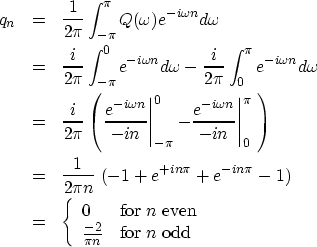 q_n = \frac{1}{2\pi} \int_{-\pi}^{\pi} Q(\omega) e^{-i\omega n} d\omega
= \frac{i}{2\pi} \int_{-\pi}^{0} e^{-i\omega n} d\omega - \frac{i}{2\pi} \int_{0}^{\pi} e^{-i\omega n} d\omega
= \frac{i}{2\pi} \left( \left. \frac{e^{-i\omega n}}{-in} \right|_{-\pi}^{0} - \left. \frac{e^{-i\omega n}}{-in} \right|_{0}^{\pi} \right)
= \frac{1}{2\pi n} (-1 + e^{+in\pi} + e^{-in\pi} - 1)
= \begin{cases} 0 & \text{for } n \text{ even} \\ \frac{-2}{\pi n} & \text{for } n \text{ odd} \end{cases}